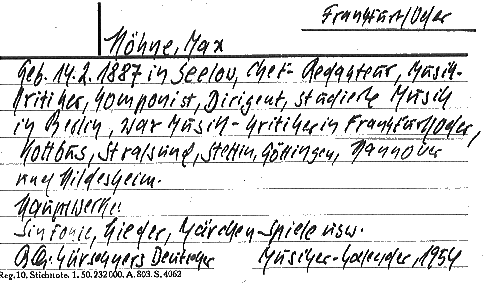 Frankfurt/Oder
Höhne, Max
Geb. 14.2.1887 in Seelow, Chef-Redakteur, Musik-
kritiker, Komponist, Dirigent, studierte Musik
in Berlin, war Musik-Kritiker in Frankfurt/Oder,
Kottbus, Stralsund, Stettin, Göttingen, Hannover
und Hildesheim.
Hauptwerke:
Sinfonie, Lieder, Märchen-Spiele usw.
Kürschners Deutscher Musiker-Kalender, 1954
Reg. 10. Stichnote. 1. 50. 232000. A. 803. S. 4062